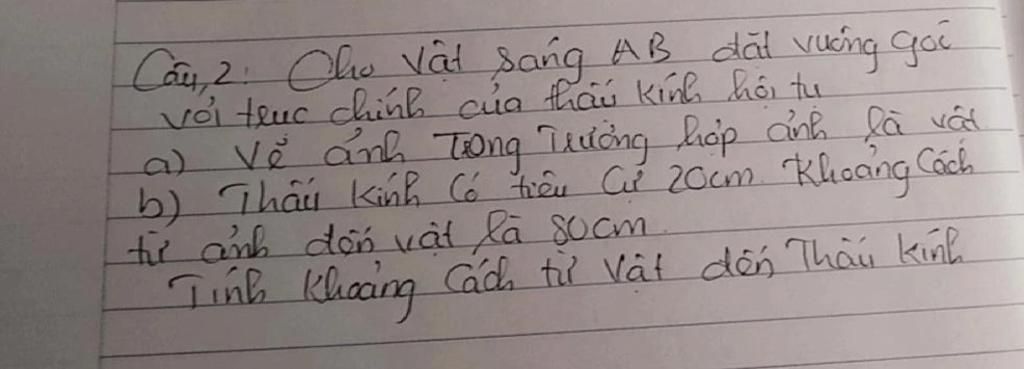 Câu 2: Cho vật sáng AB đặt vuông góc
với trục chính của thấu kính hội tụ
a) Vẽ ảnh Trong Trường hợp ảnh là vật
b) Thấu kính có tiêu cự 20cm. Khoảng cách
từ ảnh đến vật là 80cm.
Tính khoảng cách từ vật đến Thấu kính